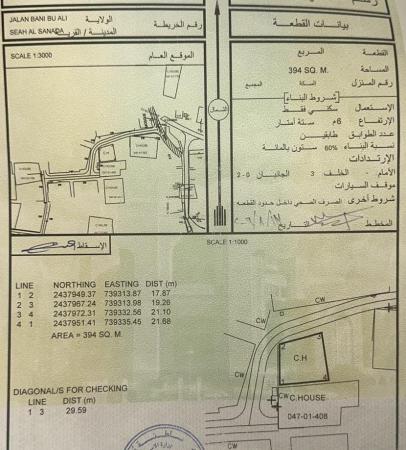 JALAN BANI BU ALI
الولاية
SEAH AL SANADA
المدينة / القرية
رقم الخريطة
بيانات القطعة
SCALE 1:3000
الموقع العام
القطعة
المربع
المساحة
394 SQ. M.
رقم المنزل
السكة
المجمع
شروط البناء
الإستعمال
سكني فقط
الإرتفاع
6م
ستة أمتار
عدد الطوابق
طابقين
نسبة البناء
60%
ستون بالمائة
الإرتدادات
الأمام - الخلف 3 الجانبان 0-2
موقف السيارات
شروط اخرى
الصرف الصحي داخل حدود القطعة
المخطط
التاريخ
الشمال
الإسقاط
SCALE 1:1000
LINE NORTHING EASTING DIST (m)
1 2 2437949.37 739313.87 17.87
2 3 2437967.24 739313.98 19.26
3 4 2437972.31 739332.56 21.10
4 1 2437951.41 739335.45 21.68
AREA = 394 SQ. M.
DIAGONAL/S FOR CHECKING
LINE DIST (m)
1 3 29.59
CW
CW
CW
2
3
C.H
1
4
CW
C.HOUSE
047-01-408